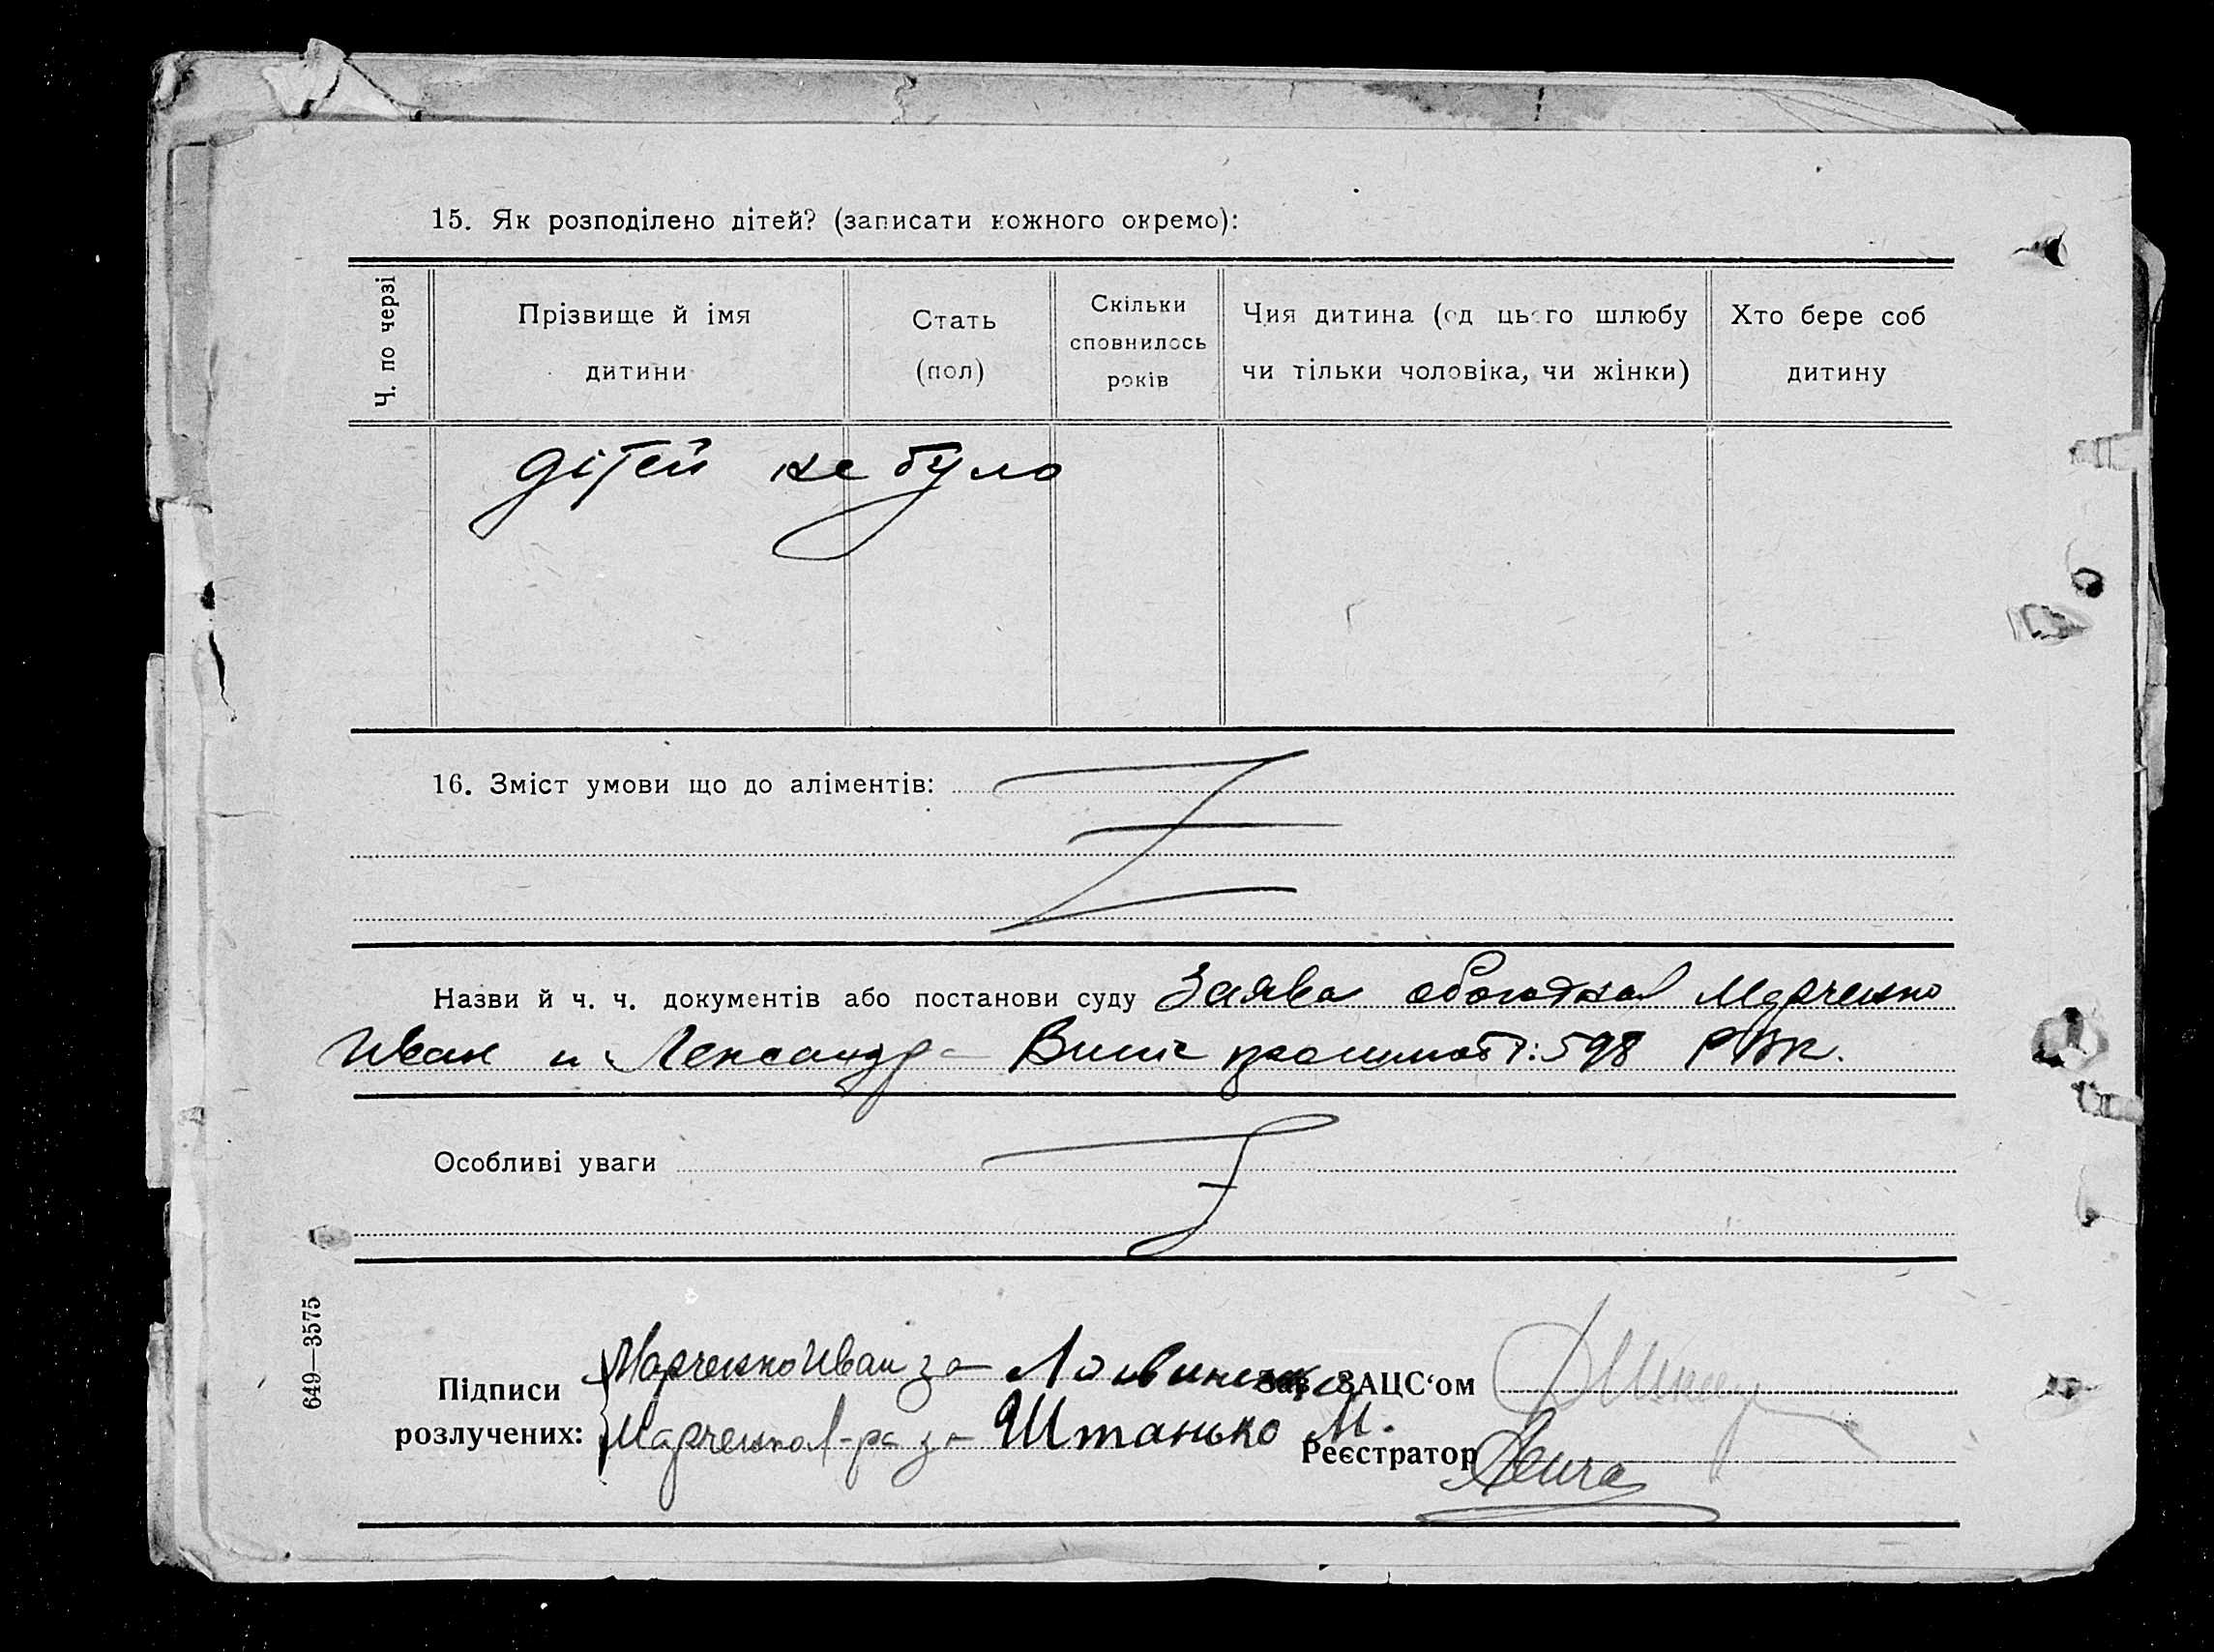 15. Як розподілено дітей? (записати кожного окремо):
Ч. по черзі
Прізвище й імя дитини
Стать (пол)
Скільки сповнилось років
Чия дитина (од цього шлюбу чи тільки чоловіка, чи жінки)
Хто бере соб дитину
дітей не було
16. Зміст умови що до аліментів:
Назви й ч. ч. документів або постанови суду Заява Марченко
Иван и Лександра 598
Особливі уваги
649—3575
Підписи розлучених:
Марченко Иван за
Марченко Л-ра за Штанько М.
Зав. ЗАЦС‘ом
Реєстратор